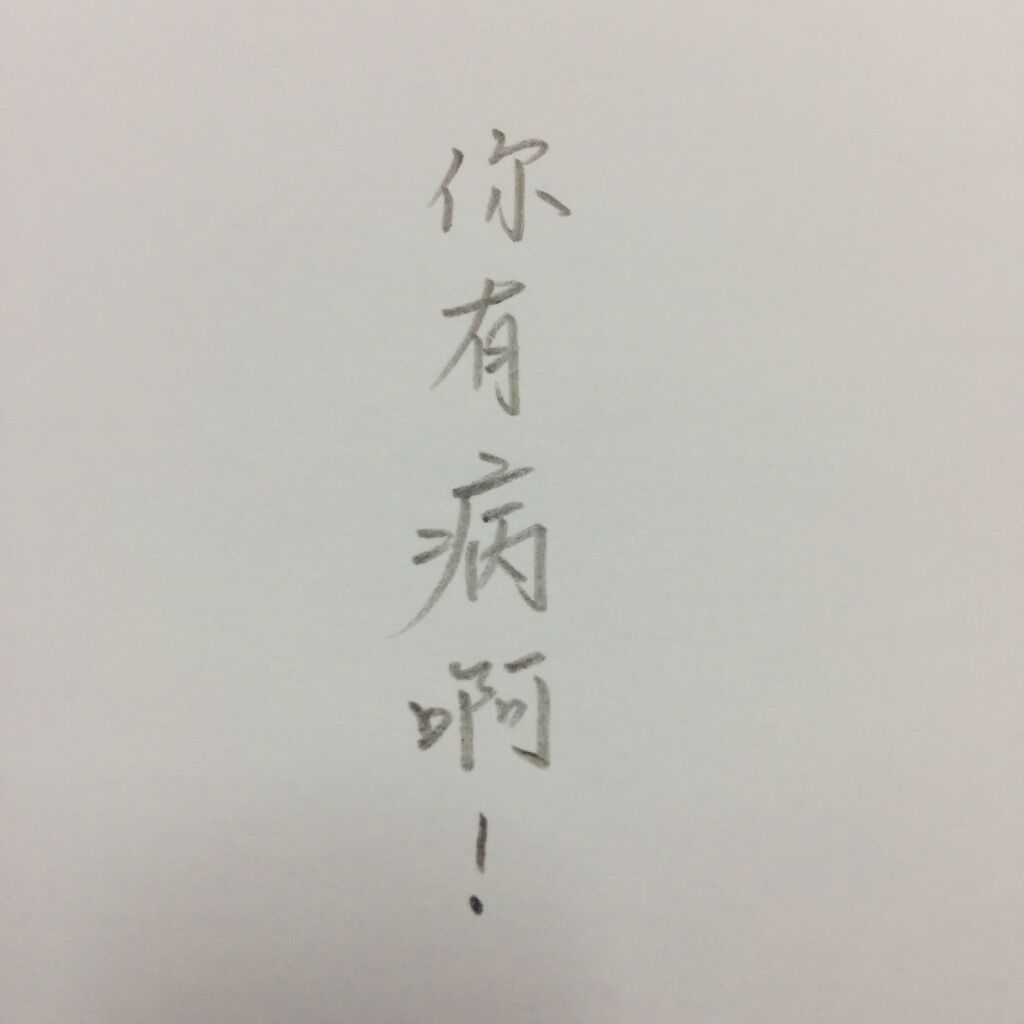 你有病啊！